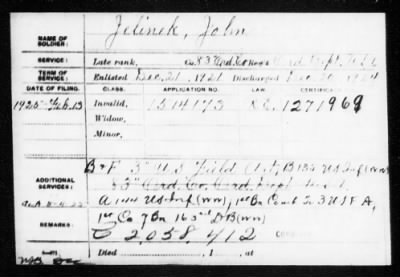 NAME OF SOLDIER: Jelinek, John
SERVICE: Late rank, Co. 83 Ord. Co. Reg't Ord. Dept. U.S.A.
TERM OF SERVICE: Enlisted Dec. 21 1921 Discharged Dec. 20 1924
DATE OF FILING. CLASS. APPLICATION NO. LAW. CERTIFICATE
1925-Feb. 13 Invalid, 1514173 1271969
Widow,
Minor,
ADDITIONAL SERVICES:
B & F 3" U.S. Field Art, B 134 US Inf (WW)
83" Ord. Co. Ord. Dept
A 144 US Inf (WW), 1st Bn 3 US F A,
1st Co 7 Bn 163rd D B (WW)
REMARKS: C 2058412
Died , 1 , at